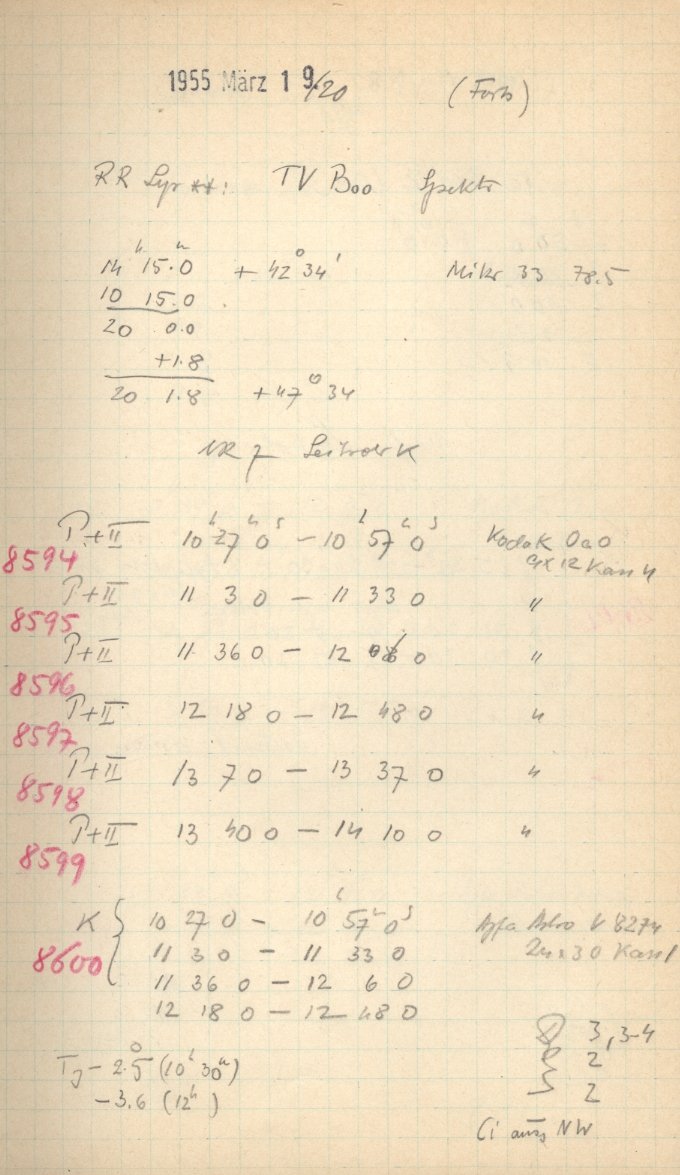 1955 März 19/20 (Forts)
RR Lyr **: TV Boo Spektr
14ʰ 15.0ᵐ + 42° 34' Mikr 33 78.5
10 15.0
20 0.0
+1.8
20 1.8 +47° 34
Leitrohr K
P+II 10ʰ 27ᵐ 0ˢ – 10ʰ 57ᵐ 0ˢ Kodak OaO
8594 9x12 Kass 4
P+II 11 3 0 – 11 33 0 "
8595
P+II 11 36 0 – 12 6 0 "
8596
P+II 12 18 0 – 12 48 0 "
8597
P+II 13 7 0 – 13 37 0 "
8598
P+II 13 40 0 – 14 10 0 "
8599
K { 10 27 0 – 10ʰ 57ᵐ 0ˢ Agfa Astro V 8274
8600 11 3 0 – 11 33 0 24x30 Kass 1
11 36 0 – 12 6 0
12 18 0 – 12 48 0
3,3-4
T_J – 2.5° (10ʰ 30ᵐ) 2
– 3.6 (12ʰ) 2
Ci aus NW